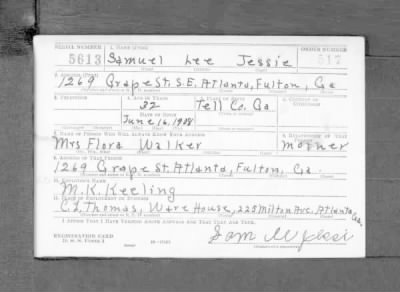 SERIAL NUMBER 1. NAME (Print) ORDER NUMBER
5613 Samuel Lee Jessie 517
(First) (Middle) (Last)
2. ADDRESS (Print)
1269 Grape St. S.E. Atlanta, Fulton, Ga
3. TELEPHONE 4. AGE IN YEARS 5. PLACE OF BIRTH 6. COUNTRY OF CITIZENSHIP
32 Tell Co. Ga
DATE OF BIRTH
June 16, 1908
7. NAME OF PERSON WHO WILL ALWAYS KNOW YOUR ADDRESS 8. RELATIONSHIP OF THAT PERSON
Mrs Flora Walker mother
9. ADDRESS OF THAT PERSON
1269 Grape St. Atlanta, Fulton, Ga.
10. EMPLOYER'S NAME
M. K. Keeling
11. PLACE OF EMPLOYMENT OR BUSINESS
Thomas, Ware House, 225 Milton Ave. Atlanta Ga.
I AFFIRM THAT I HAVE VERIFIED ABOVE ANSWERS AND THAT THEY ARE TRUE.
REGISTRATION CARD
D. S. S. FORM 1
Sam